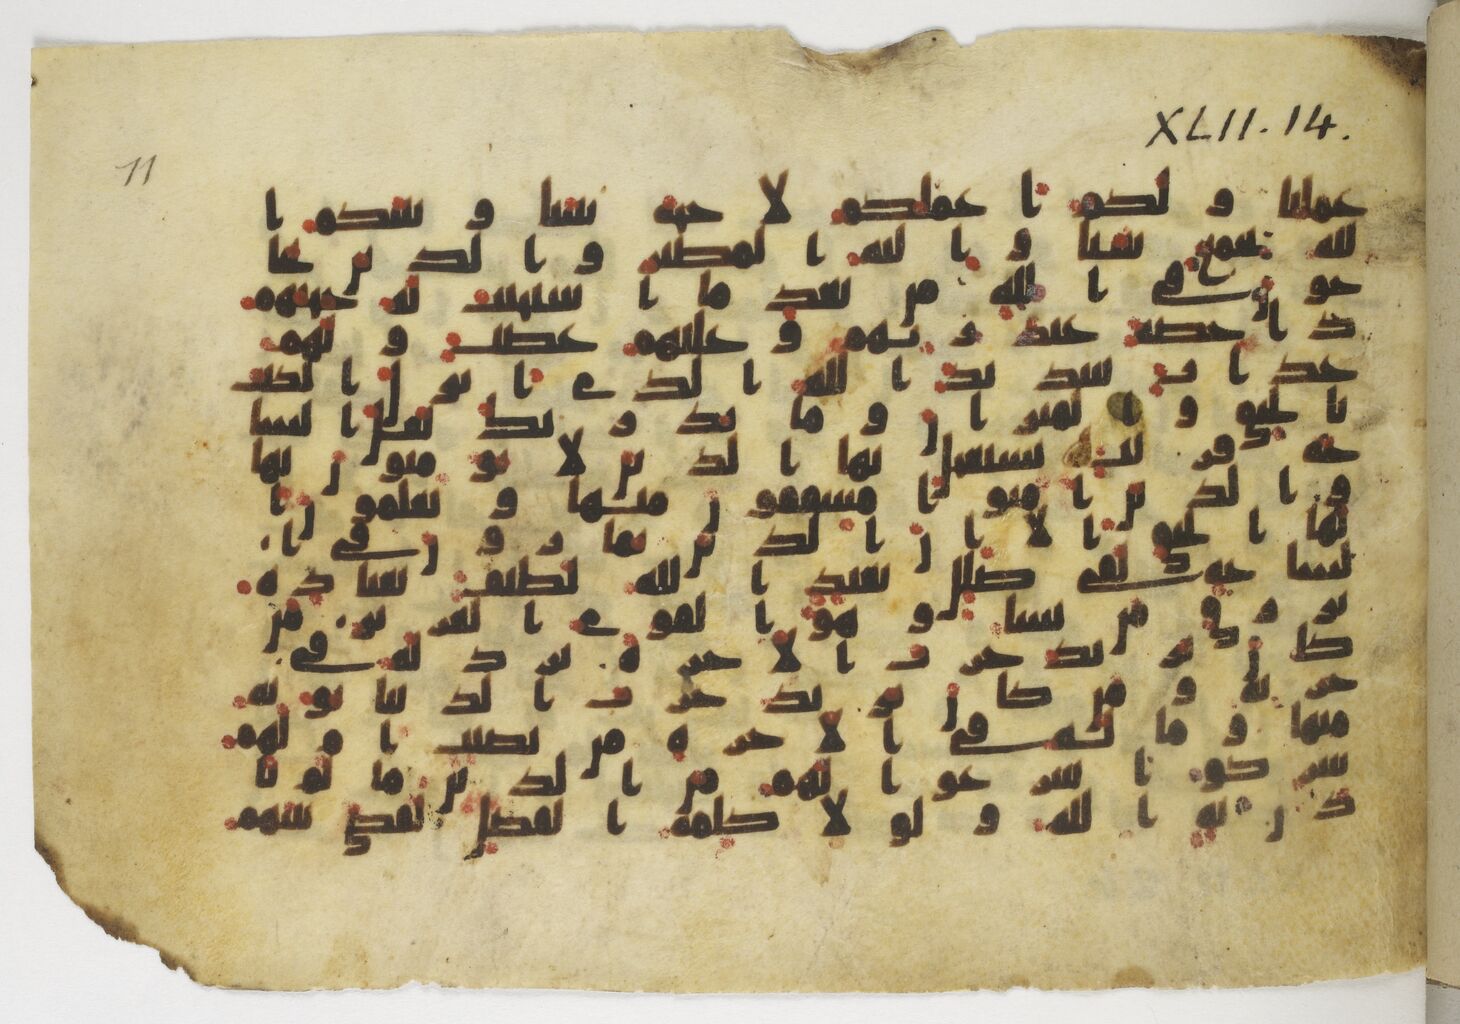 XLII.14.
11
عملنا و لكم ا عملكم لا حجة بيننا و بينكم ا
لله يجمع بيننا و ا ليه ا لمصير و ا لذ ين يحا
جو ن في ا لله من بعد ما ا ستجيب له حجتهم
د ا حضة عند ر بهم و عليهم غضب و لهم
عذ ا ب شد يد ا لله ا لذي ا نزل ا لكتب
با لحق و ا لميز ا ن و ما يد ر يك لعل ا لسا
عة قريب يستعجل بها ا لذ ين لا يو منو ن بها
و ا لذ ين ا منو ا مشفقو ن منها و يعلمو ن ا
نها ا لحق ا لا ا ن ا لذ ين يما ر و ن في ا
لسا عة لفي ضلل بعيد ا لله لطيف بعبا د ه
ير ز ق من يشا و هو ا لقوي ا لعز يز من
كا ن ير يد حر ث ا لا خر ة نز د له في
حر ثه و من كا ن ير يد حر ث ا لد نيا نو ته
منها و ما له في ا لا خر ة من نصيب ا م لهم
شر كو ا شر عو ا لهم من ا لد ين ما لم يا
ذ ن به ا لله و لو لا كلمة ا لفصل لقضي بينهم